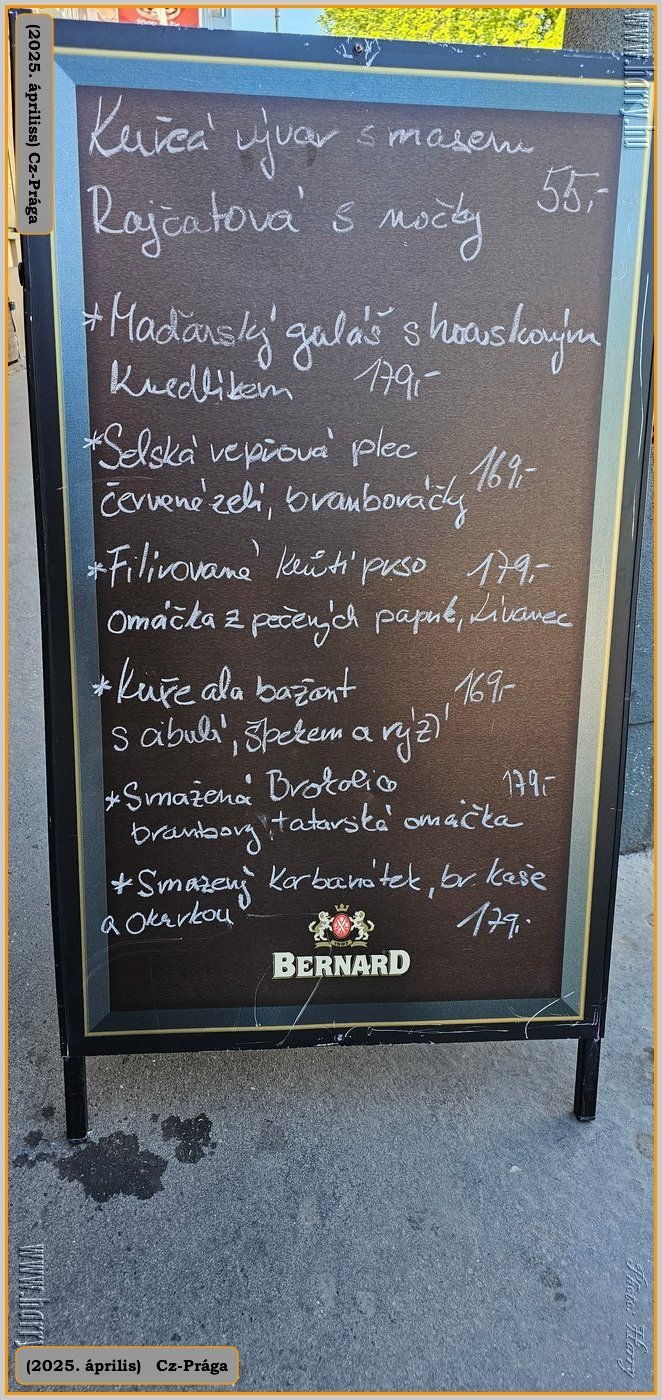 (2025. áprilíss) Cz-Prága
www.harry.hu
Kuřecí vývar s masem
55,-
Rajčatová s nočky
*Maďarský guláš s houskovým
knedlíkem 179,-
*Selská vepřová plec
169,-
červené zelí, bramboráčky
*Filírované krůtí prso 179,-
omáčka z pečených paprik, Lívanec
*Kuře ala bažant 169,-
s cibulí, špekem a rýží
*Smažená Brokolice 179,-
brambory, tatarská omáčka
*Smažený karbanátek, br. kaše
a okurkou 179,-
1597
BERNARD
www.harry
Photo: Harry
(2025. április) Cz-Prága